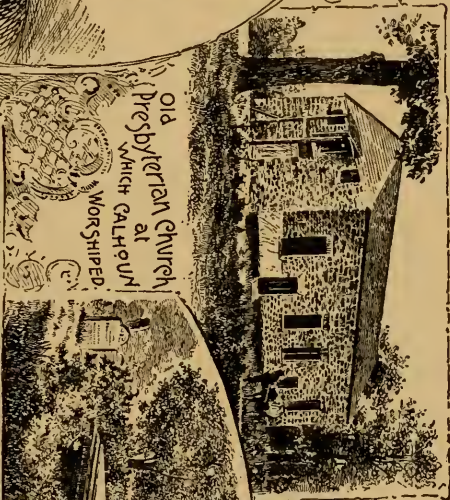 Old
Presbyterian Church
at
WHICH CALHOUN
WORSHIPED.